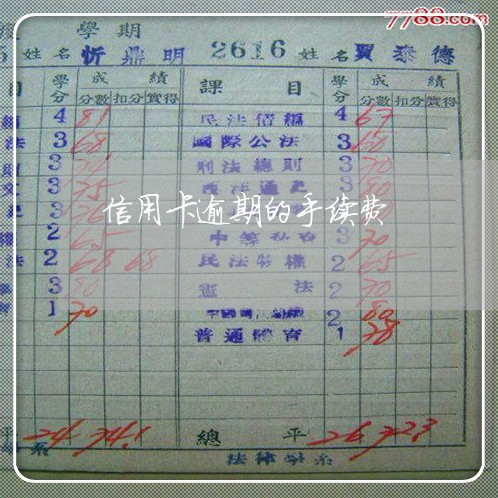 7788.com
學期
姓名 忻鼎明 2616 姓名 賈泰德
目 學分 成績 課目 學分 成績
分數 扣分 實得 分數 扣分 實得
4 81 民法債編 4 67
法 3 68 國際公法 3 60
3 刑法總則 3 70
3 75 3 80
3
信用卡逾期的手续费
2 65 3 70
法 2 68 68 民法物權 2 65
3 80 憲法 2 70
育 1 70 2 80
普通體育 1 78
平 24 74.1 總平 26 72.3
系 法律學系